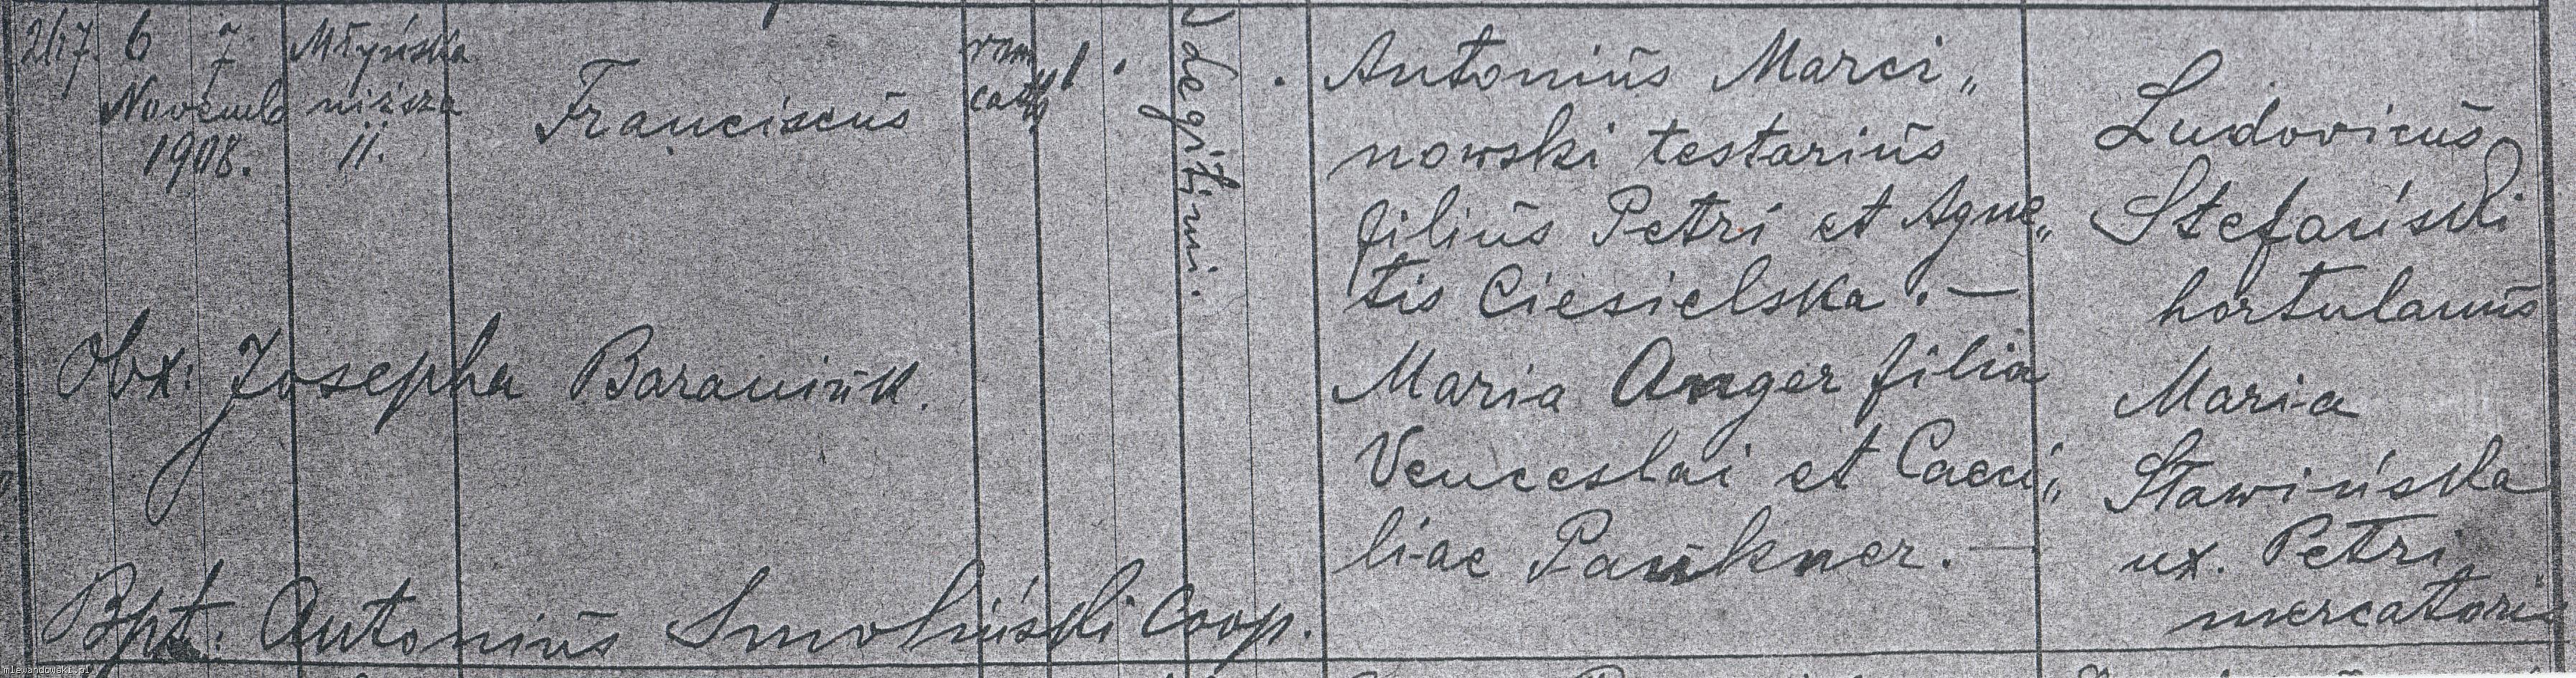 217. 6 7 Młyńska
Novemb niższa
1908. 11.
Franciscus
rom
cath
1 .
Legitimi.
.
Antonius Marci„
nowski testarius
filius Petri et Agne„
tis Ciesielska . —
Maria Anger filia
Venceslai et Caeci„
liae Paukner. —
Ludovicus
Stefański
hortulanus
Maria
Sławińska
ux. Petri
mercatoris
Obx: Josepha Baraniuk.
Bpt: Antonius Smoliński Coop.
mlewandowski.pl